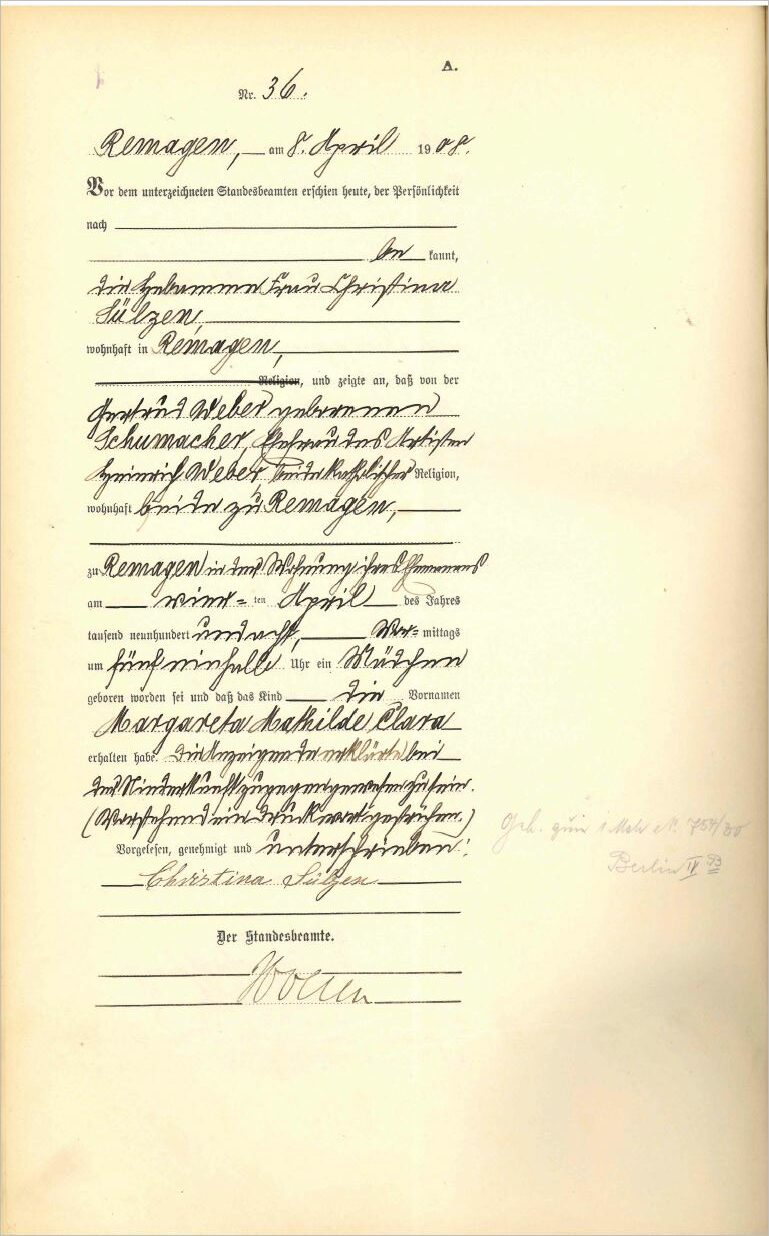 A.
Nr. 36.
Remagen, am 8. April 1908.
Vor dem unterzeichneten Standesbeamten erschien heute, der Persönlichkeit
nach
be kannt,
die Hebamme Frau Christina
Sülzen,
wohnhaft in Remagen,
Religion, und zeigte an, daß von der
Gertrud Weber geborenen
Schumacher, Ehefrau des Artisten
Heinrich Weber, beide katholischer Religion,
wohnhaft beide zu Remagen,
zu Remagen in der Wohnung ihres Ehemannes
am vier= ten April des Jahres
tausend neunhundert und acht, Vor= mittags
um fünf einhalb Uhr ein Mädchen
geboren worden sei und daß das Kind die Vornamen
Margareta Mathilde Clara
erhalten habe. Die Anzeigende erklärte bei
der Niederkunft zugegen gewesen zu sein.
(Vorstehend ein Druckwort gestrichen.)
Vorgelesen, genehmigt und unterschrieben:
Christina Sülzen
Der Standesbeamte.
Geb. 1 Mal 754/30
Berlin IV B